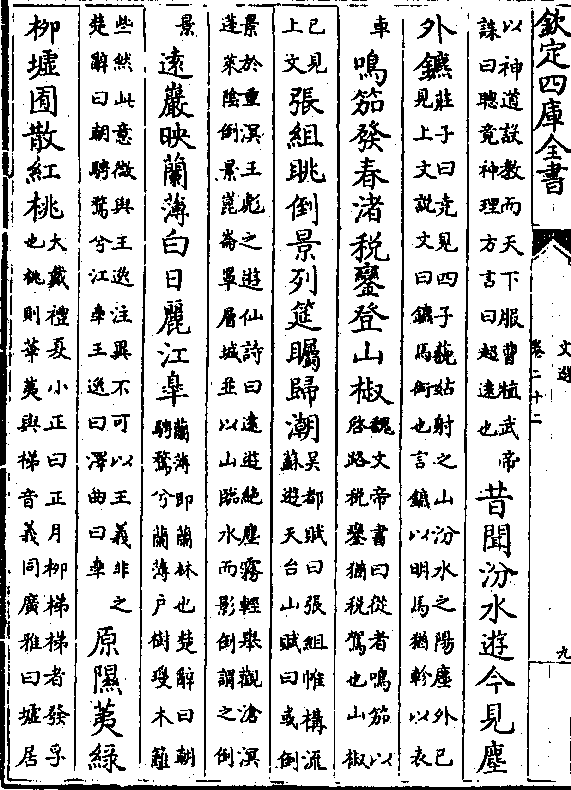 欽定四庫全書
文選
卷二十二
九
以神道設教而天下服曹植武帝
誄曰聰竟神理方言曰超遠也
昔聞汾水遊今見塵
外鑣
莊子曰堯見四子藐姑射之山汾水之陽塵外已
見上文説文曰鑣馬銜也言鑣以明馬猶軫以表
車
鳴笳發春渚税鑾登山椒
魏文帝書曰從者鳴笳以
啓路税鑾猶税駕也山椒
已見
上文
張組眺倒景列筵矚歸潮
吳都賦曰張組帷構流
蘇遊天台山賦曰或倒
景於重溟王彪之遊仙詩曰遠遊絶塵霧輕舉觀滄溟
蓬萊陰倒景崑崙罩層城並以山臨水而影倒謂之倒
景
遠巖映蘭薄白日麗江臯
蘭薄即蘭林也楚辭曰朝
騁騖兮蘭薄户樹瓊木籬
些然此意微與王逸注異不可以王義非之
楚辭曰朝騁騖兮江臯王逸曰澤曲曰臯
原隰荑緑
柳墟囿散紅桃
大戴禮夏小正曰正月柳梯梯者發孚
也桃則華荑與梯音義同廣雅曰墟居